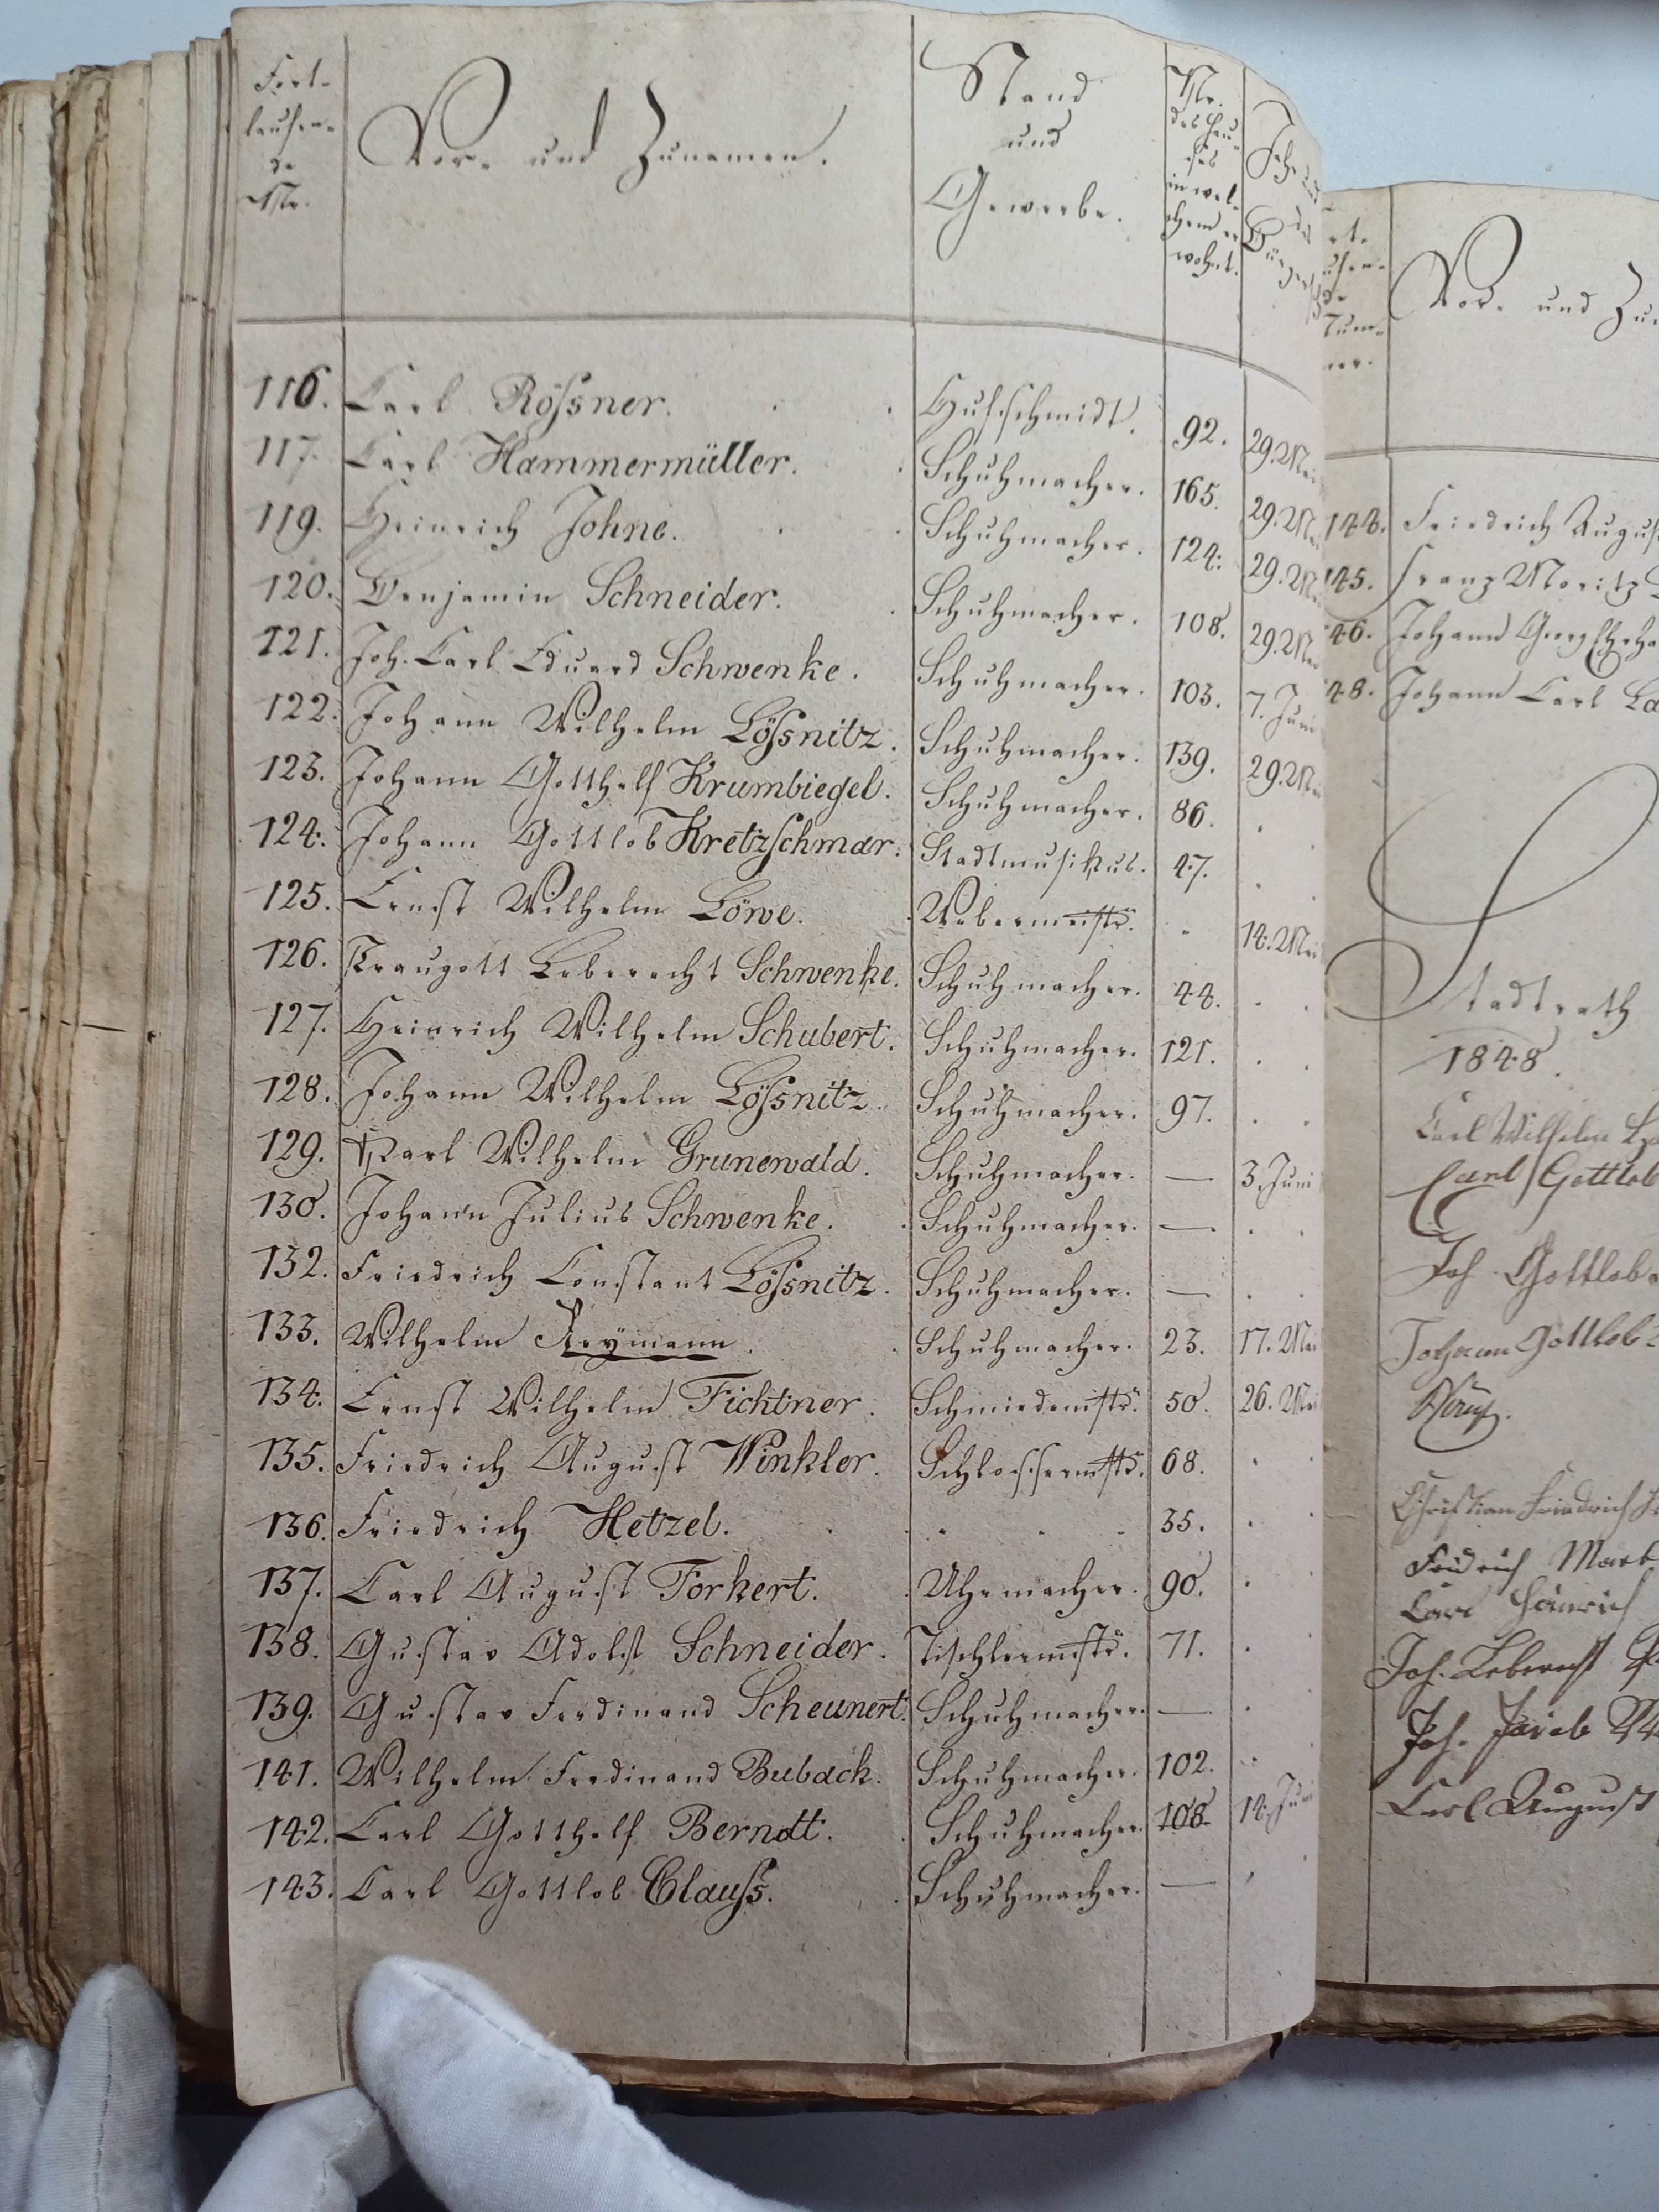 Fort-
laufen-
de
Nr.
Vor- und Zunamen.
Stand
und
Gewerbe.
Nr.
des Hau-
ses
in wel-
chem er
wohnt.
116. Carl Rößner. Hufschmidt. 92. 29. Mai
117. Carl Hammermüller. Schuhmacher. 165. 29. Mai
119. Heinrich Johne. Schuhmacher. 124. 29. Mai
120. Benjamin Schneider. Schuhmacher. 108. 29. Mai
121. Joh. Carl Eduard Schwenke. Schuhmacher. 103. 7. Juni
122. Johann Wilhelm Lößnitz. Schuhmacher. 139. 29. Mai
123. Johann Gotthelf Krumbiegel. Schuhmacher. 86.
124. Johann Gottlob Kretzschmar. Stadtmusikus. 47.
125. Ernst Wilhelm Löwe. Webermeistr. 14. Mai
126. Traugott Leberecht Schwenke. Schuhmacher. 44.
127. Heinrich Wilhelm Schubert. Schuhmacher. 121.
128. Johann Wilhelm Lößnitz. Schuhmacher. 97.
129. Karl Wilhelm Grunewald. Schuhmacher. — 3. Juni
130. Johann Julius Schwenke. Schuhmacher. —
132. Friedrich Constant Lößnitz. Schuhmacher. —
133. Wilhelm Reymann. Schuhmacher. 23. 17. Mai
134. Ernst Wilhelm Fichtner. Schmiedemstr. 50. 26. Mai
135. Friedrich August Winkler. Schlossermstr. 68.
136. Friedrich Hetzel. 35.
137. Carl August Forkert. Uhrmacher. 90.
138. Gustav Adolf Schneider. Tischlermstr. 71.
139. Gustav Ferdinand Scheunert. Schuhmacher. —
141. Wilhelm Ferdinand Buback. Schuhmacher. 102.
142. Carl Gotthelf Berndt. Schuhmacher. 108. 14. Juni
143. Carl Gottlob Clauß. Schuhmacher. —
Vor- und Zu
144. Friedrich August
145. Franz Moritz
46. Johann Georg Ehrha
48. Johann Carl
Stadtrath
1848.
Carl Wilhelm
Carl Gottlob
Joh. Gottlob
Johann Gottlob
Christian Friedrich
Friedrich
Carl Heinrich
Joh. Leberecht
Joh. Jacob
Carl August